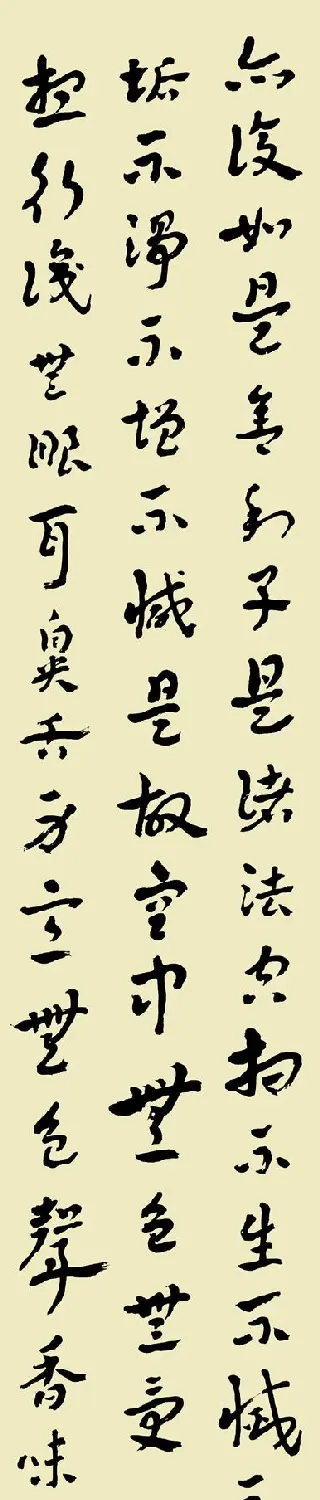 亦復如是舍利子是諸法空相不生不滅不
垢不淨不增不滅是故空中無色無受
想行識無眼耳鼻舌身意無色聲香味